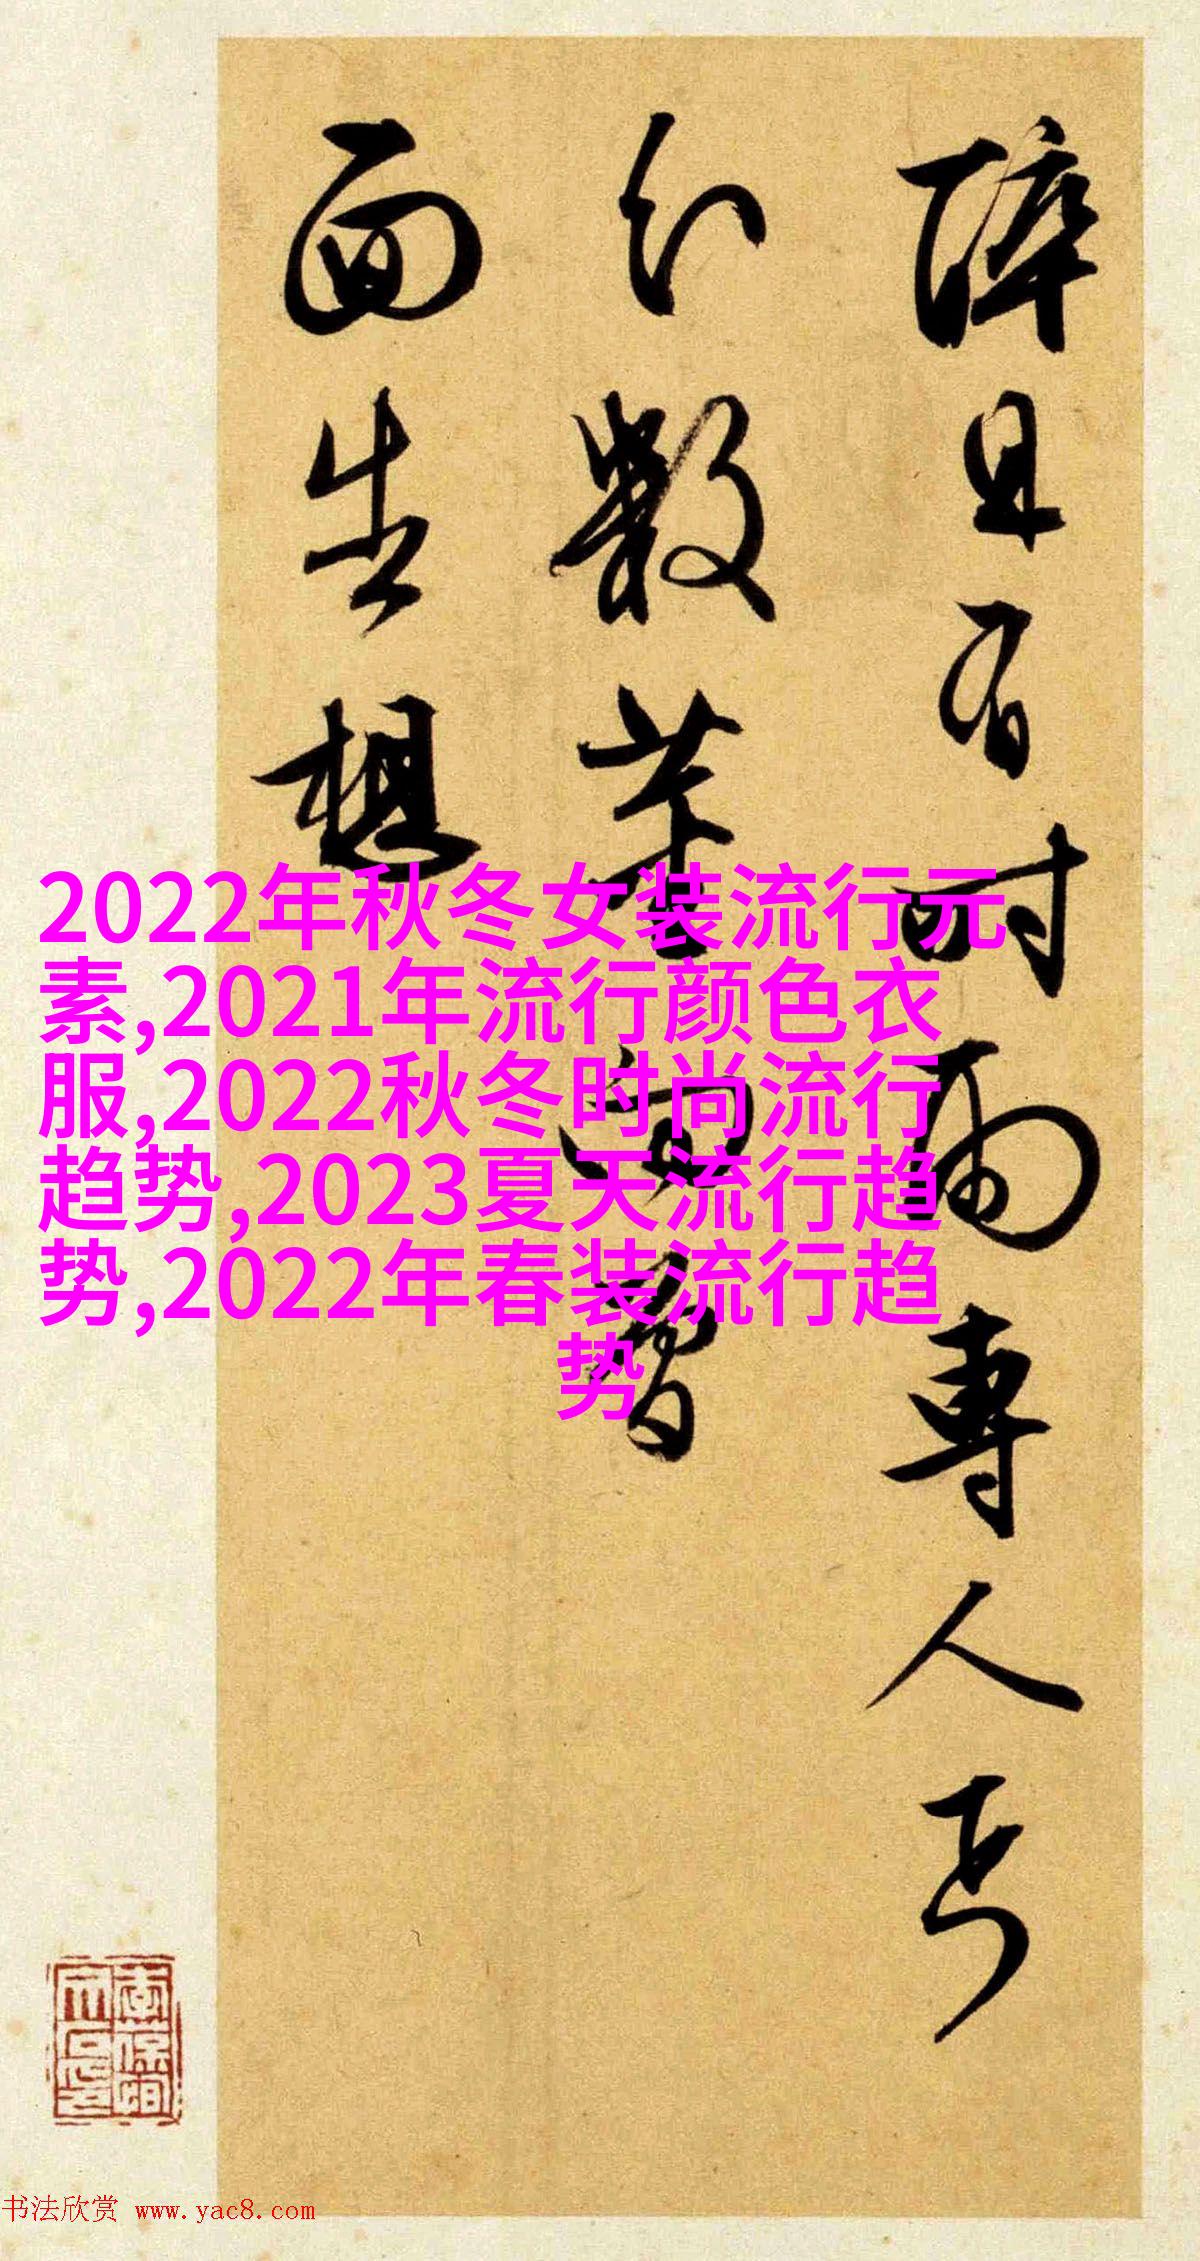 障日有时而专人丐
幻数業而習
面生想
2022年秋冬女装流行元
素,2021年流行颜色衣
服,2022秋冬时尚流行
趋势,2023夏天流行趋
势,2022年春装流行趋
势
书法欣赏 www.yac8.com